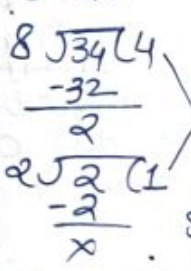 8 √34 ( 4
-32
2
2 √2 ( 1
-2
x .